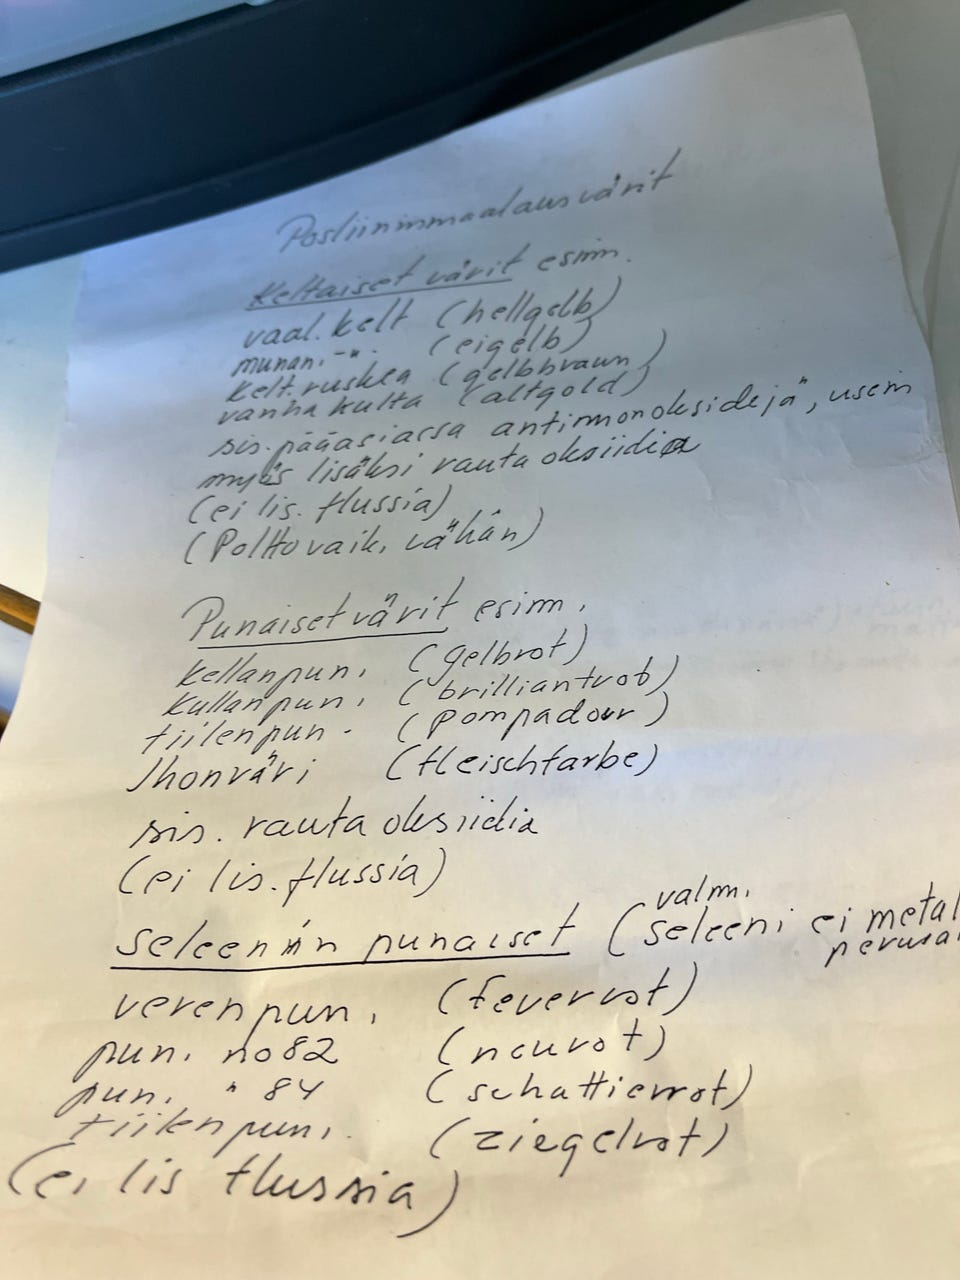 Posliininmaalausvärit
Keltaiset värit esim.
vaal. kelt (hellgelb)
munan. -"- (eigelb)
kelt. ruskea (gelbbraun)
vanha kulta (altgold)
sis. pääasiassa antimonoksidejä, usein
myös lisäksi rautaoksiidia
(ei lis. flussia)
(Polttovaik. vähän)
Punaiset värit esim.
kellanpun. (gelbrot)
kullanpun. (brilliantrot)
tiilenpun. (pompadour)
Ihonväri (fleischfarbe)
sis. rautaoksiidia
(ei lis. flussia)
valm.
seleenin punaiset (seleeni ei metal
perusa
verenpun. (feuerrot)
pun. no 82 (neurot)
pun. " 84 (schattierrot)
tiilenpun. (ziegelrot)
(ei lis flussia)